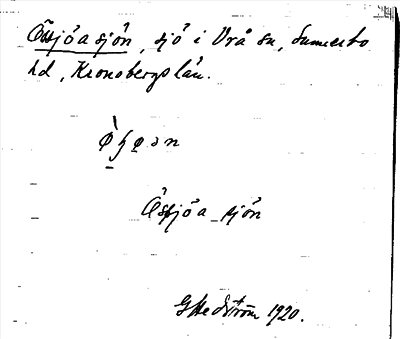 Össjöasjön, sjö i Vrå sn, Sunnerbo
hd, Kronobergs län.
Össjöa sjön
G Hedström 1920.